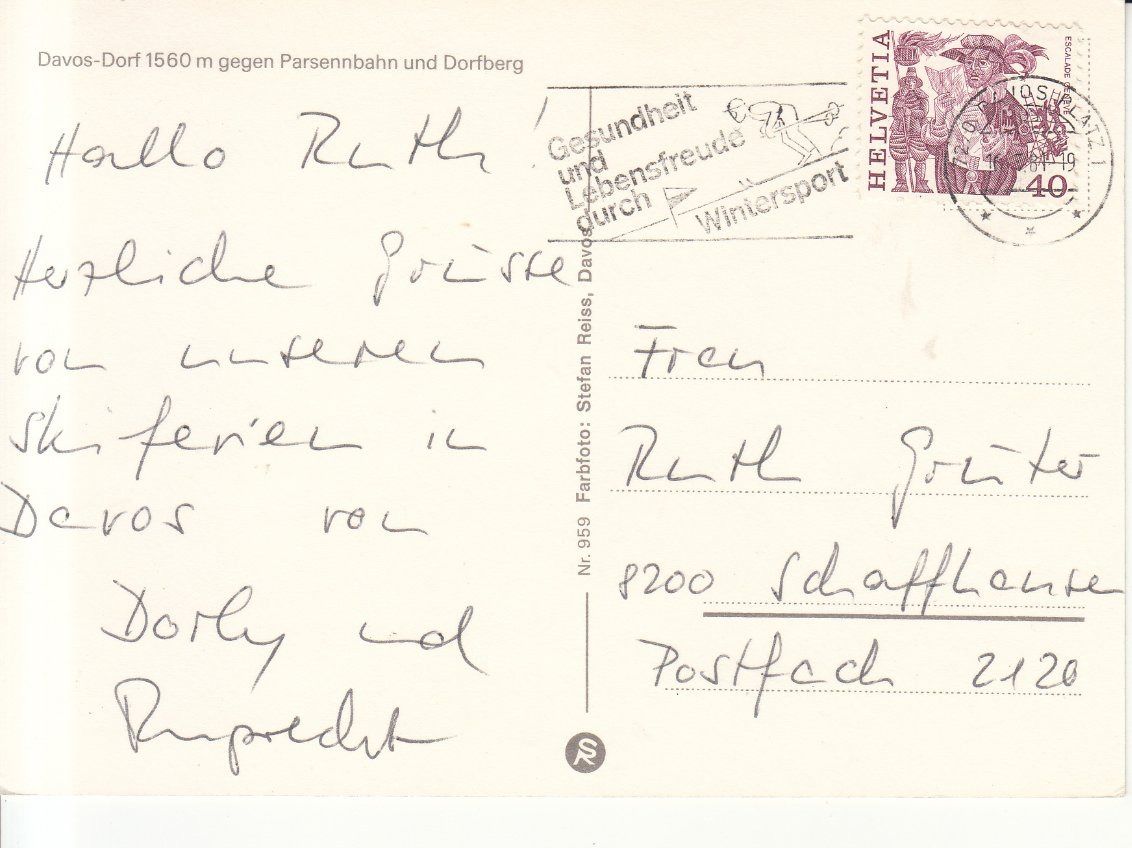 Davos-Dorf 1560 m gegen Parsennbahn und Dorfberg
Hallo Ruth!
Herzliche Grüsse
von unseren
Skiferien in
Davos von
Dorly und
Ruprecht
Gesundheit
und
Lebensfreude
durch
Wintersport
HELVETIA
ESCALADE GENÈVE
40
Nr. 959 Farbfoto: Stefan Reiss, Davos
Frau
Ruth Grüter
8200 Schaffhausen
Postfach 2120
SR